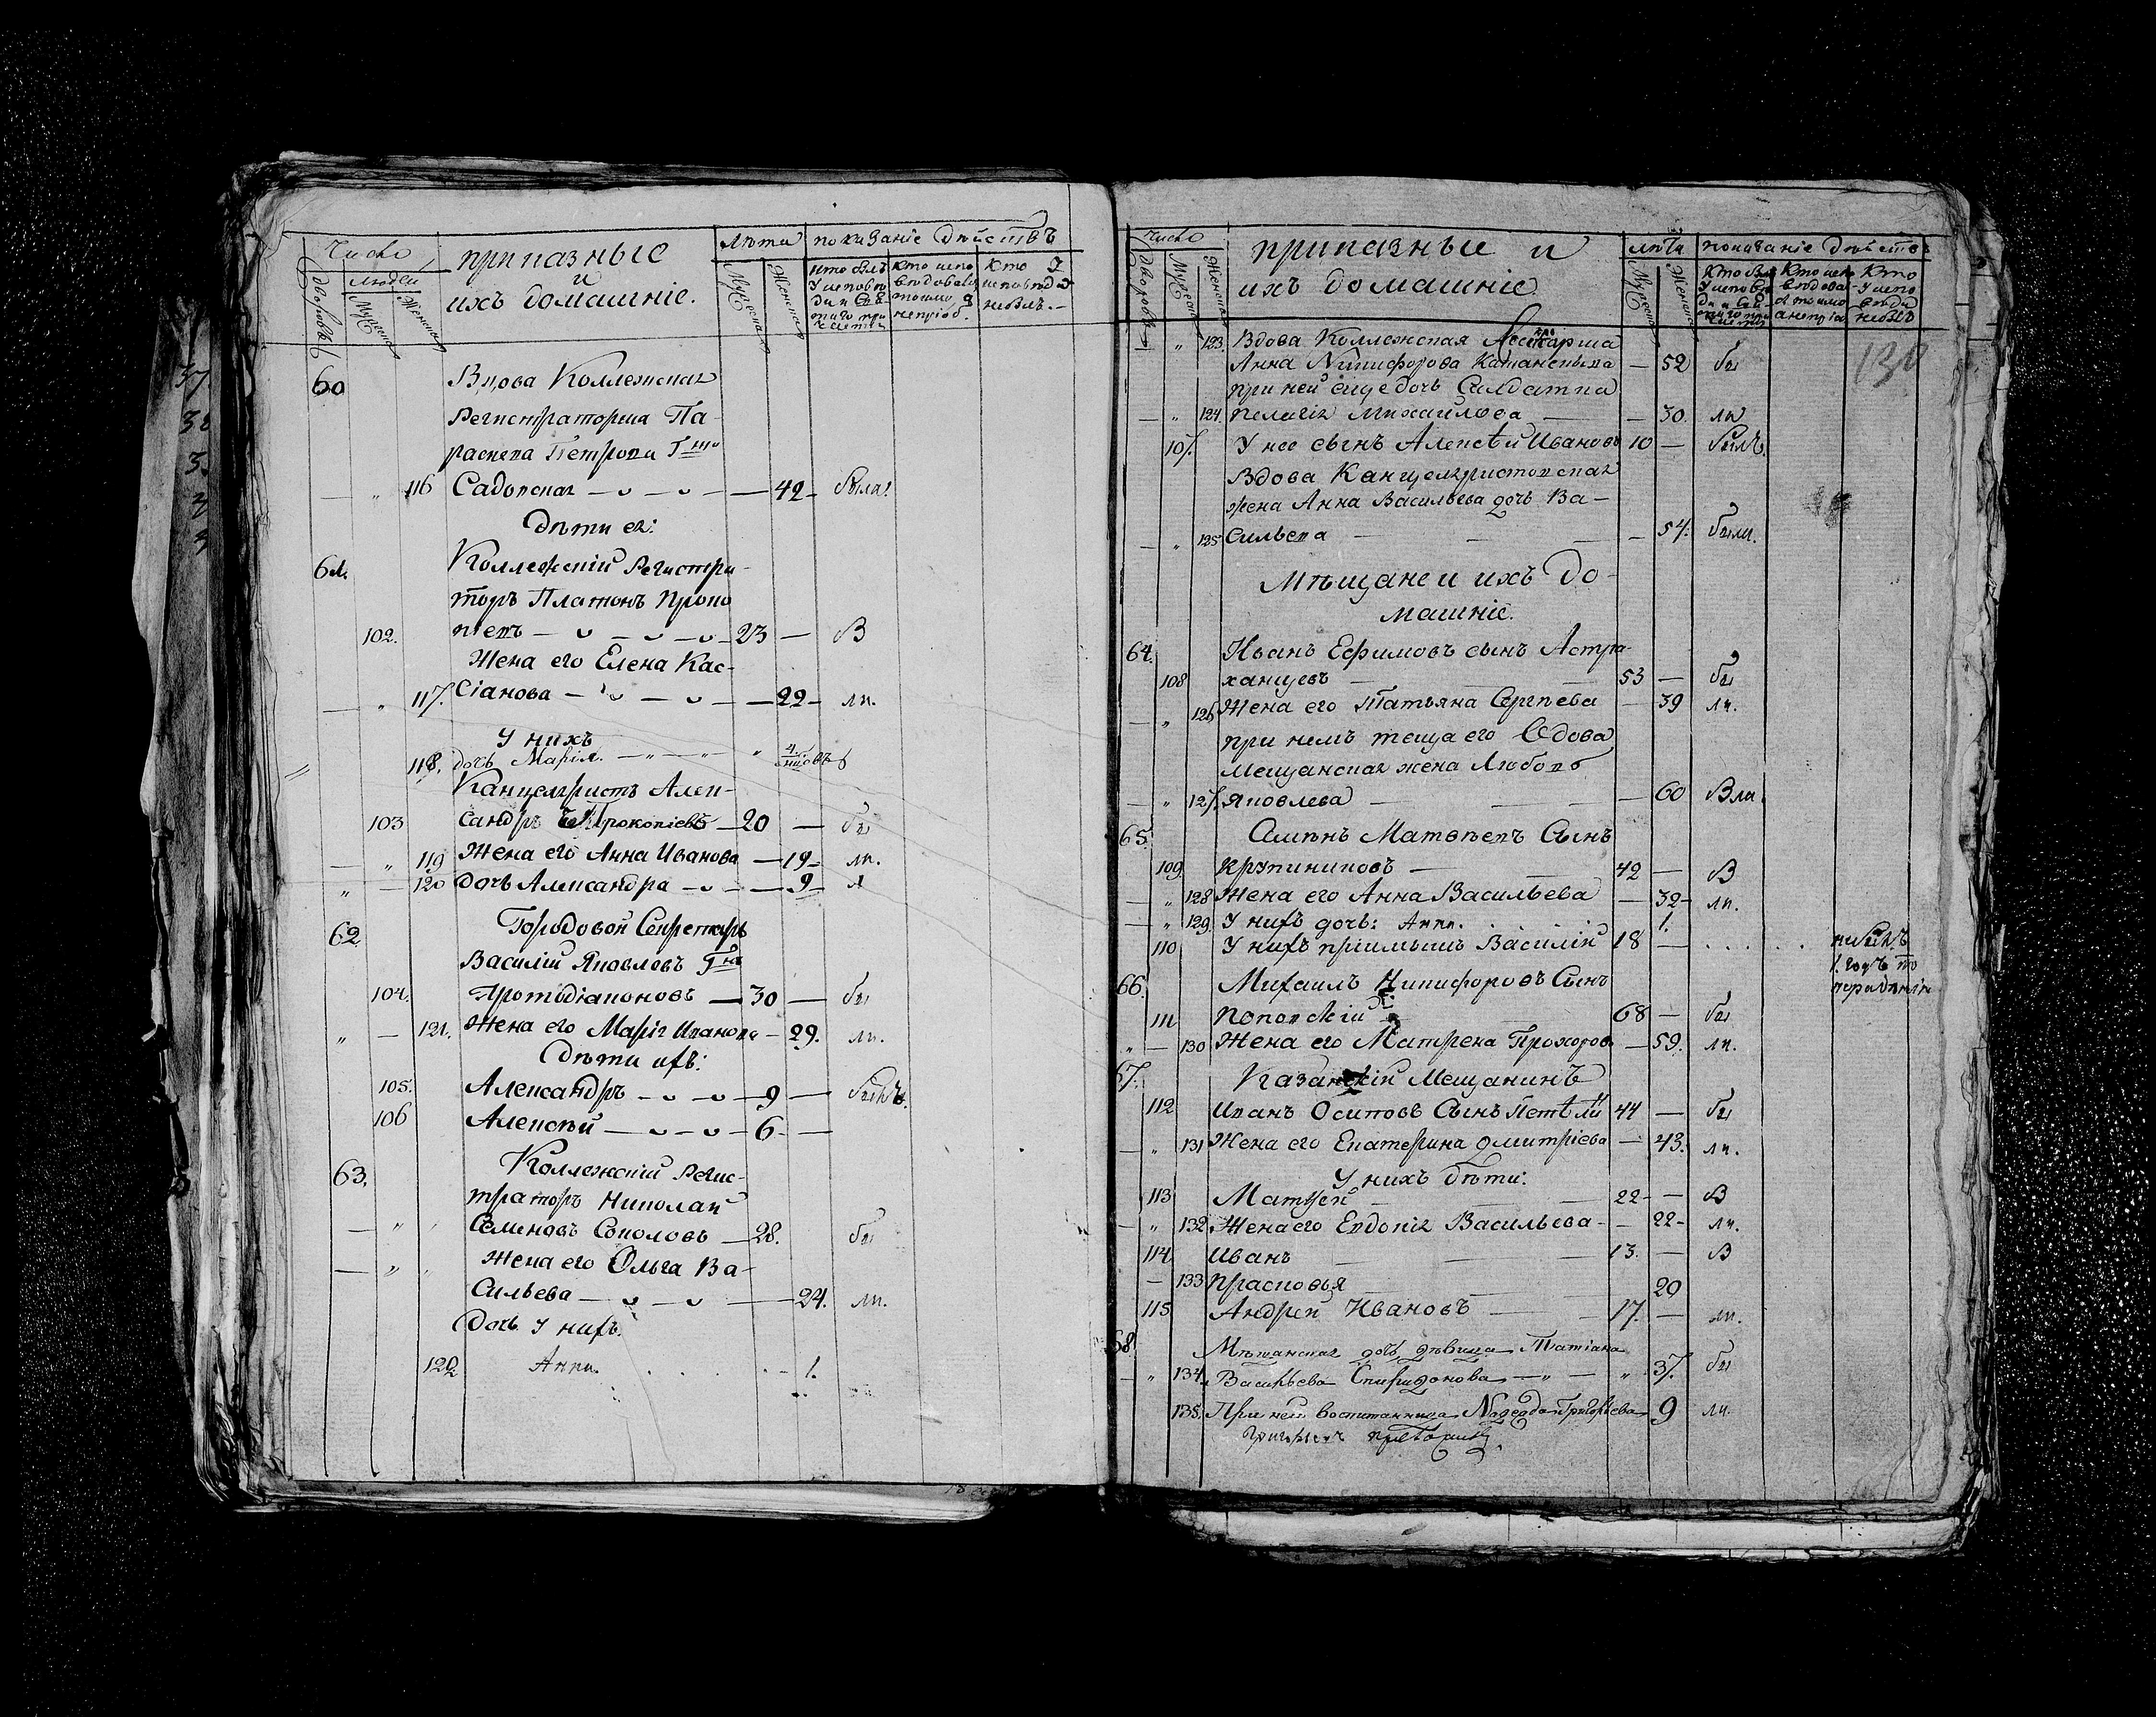 Число
людей
дворовъ
Мужеска
Женска
приказные
и
ихъ домашніе.
лѣта
Мужеска
Женска
показаніе дѣйствъ
кто былъ
у исповѣ
ди и Свя
таго при
частія
кто испо
вѣдовался
токмо, а
непріоб.
Кто У
исповѣди
небылъ.
60
Вдова Коллежская
Регистраторша Па-
раскева Петрова Гжа
" 116 Садовская — 42 — была.
Дѣти ея:
61.
Коллежскій Регистра-
торъ Платонъ Проко
102. піевъ — 23 — В
Жена его Елена Кас-
" 117. сіанова — 22 — ли.
У нихъ
118. дочь Марія. — " — " " 4.
Канцеляристъ Алек-
103 сандръ Прокопіевъ — 20 — бы
" 119 Жена его Анна Иванова — 19 — ли.
" — 120 дочь Александра — 9 — л
62.
Городовой Секретарь
Василій Яковлевъ Гнъ
104. Протодіаконовъ — 30 — бы
" — 121. Жена его Марія Иванова — 29. ли.
Дѣти ихъ:
105. Александръ — 9 — былъ.
106 Алексѣй — 6 —
63.
Коллежскій Регис-
траторъ Николай
— " Семеновъ Соколовъ — 28. бы
Жена его Ольга Ва-
— " сильева — 24. ли.
Дочь у нихъ.
122 Анна. 1.
Число
дворовъ
Мужеска
Женска
приказные и
ихъ домашніе
лѣта
Мужеска
Женска
показаніе дѣйствъ
Кто был
у исповѣ
ди и Свя
таго при
частія
Кто испо
вѣдова
л токмо
а непріо
Кто
у испо
вѣди
небылъ
130
— " 123. Вдова Коллежская Ассесорша
Анна Никифорова — 52 бы
при ней еще дочь Солдатка
— " 124. Пелагія Михайлова — 30. ли
107. У нее сынъ Алексѣй Ивановъ 10 — былъ.
Вдова Канцеляристовская
жена Анна Васильева дочь Ва-
— " 125 сильева — 54. была.
Мѣщане и ихъ До-
машніе.
64. Иванъ Ефимовъ сынъ Астра-
108 ханцевъ — 53 — бы
— " 126 Жена его Татьяна Сергѣева — 39 ли.
при немъ теща его вдова
Мещанская жена Любовь
— " 127. Яковлева — 60 Вла.
65. Симонъ Матвѣевъ Сынъ
109. Крупениковъ — 42 — В
— " 128 Жена его Анна Васильева — 32 — ли.
— " 129 У нихъ дочь: Анна. 1.
110 У нихъ пріимышъ Василій 18 — . . . . небылъ
1. годъ по
нерадѣнію
66. Михаилъ Никифоровъ Сынъ
111 Поповскій 68 — бы
" — 130 Жена его Матрена Прохоров — 59. ли.
67. Казанскій Мещанинъ
112 Иванъ Осиповъ Сынъ 44 — бы
— " 131 Жена его Екатерина Дмитріева — 43. ли.
У нихъ дѣти:
113 Матвей — 22 — В
— " 132. Жена его Евдокія Васильева — 22 — ли.
114. Иванъ — 13. — В
— 133 Прасковья 20
115 Андрей Ивановъ — 17. — ли.
68. Мѣщанская дочь дѣвица Татіана
— " 134. Васильева Спиридонова — " — " 37. бы
135. При ней воспитанница Надежда Григорьева 9 ли.